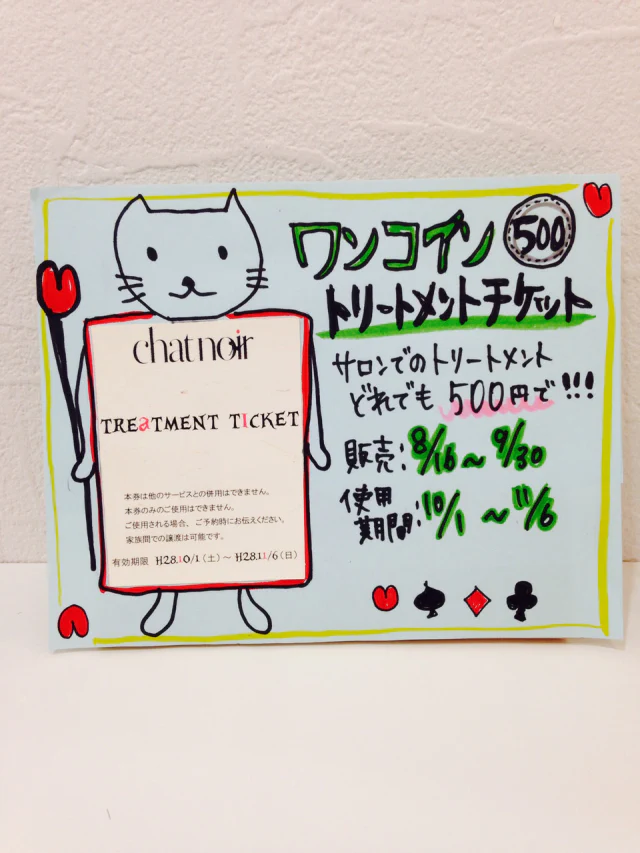 ワンコイン 500
トリートメントチケット
サロンでのトリートメント
どれでも 500円で!!!
販売:8/16~9/30
使用期間:10/1~11/6
chatnoir
TREaTMENT TICKET
本券は他のサービスとの併用はできません。
本券のみのご使用はできません。
ご使用される場合、ご予約時にお伝えください。
家族間での譲渡は可能です。
有効期限 H28.10/1(土)~H28.11/6(日)